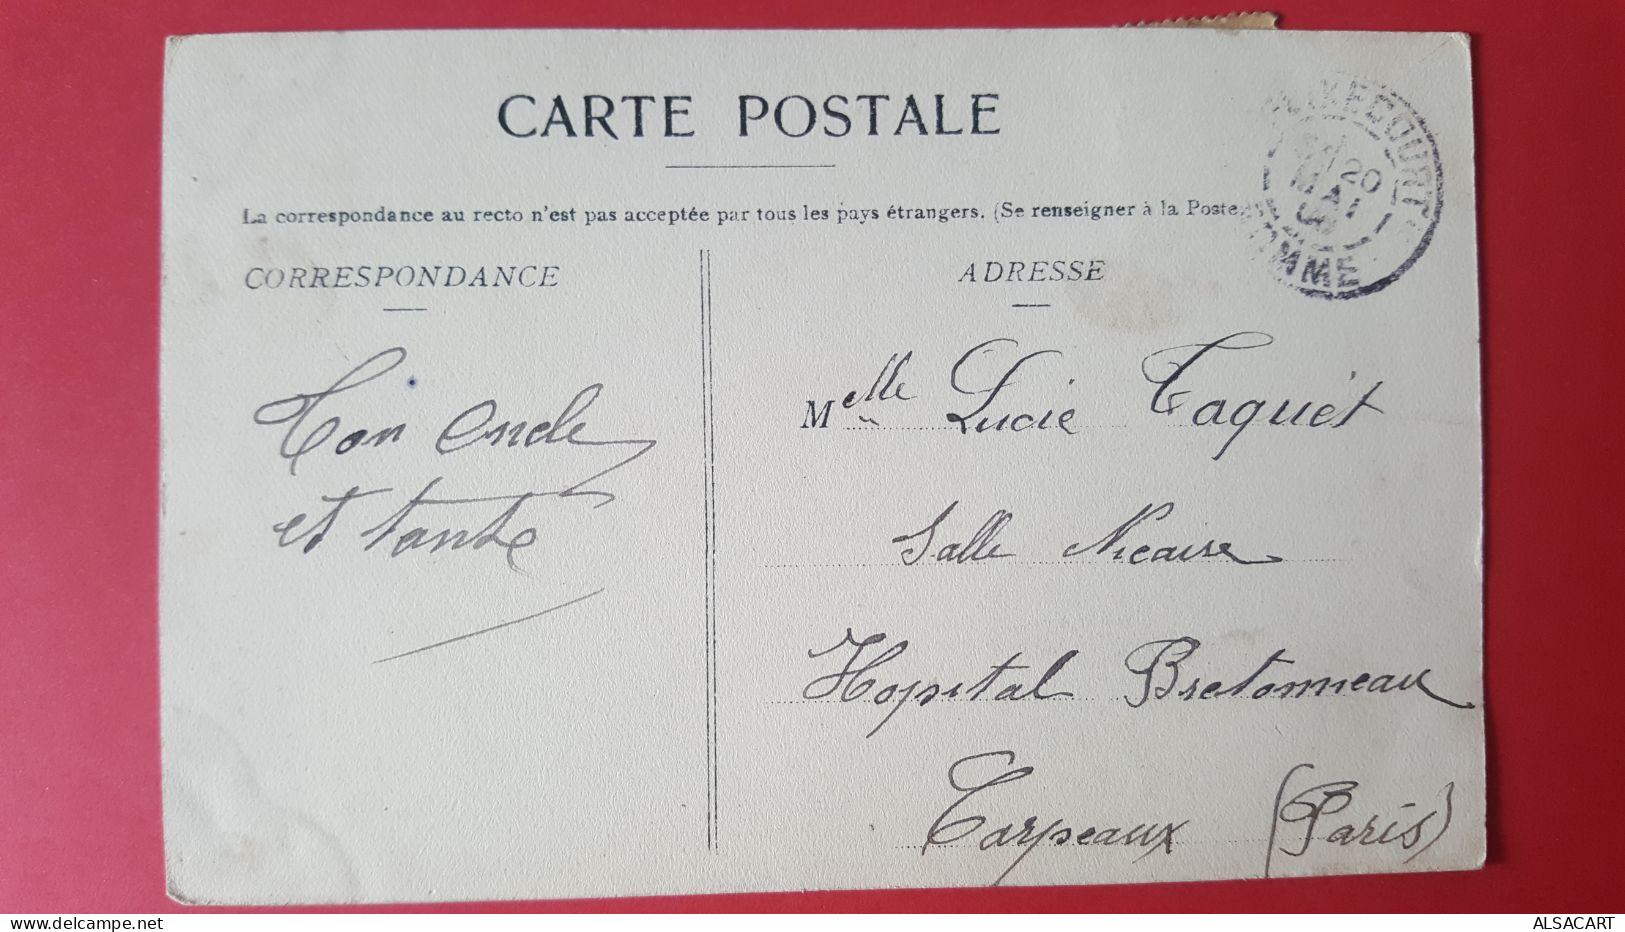 CARTE POSTALE
La correspondance au recto n'est pas acceptée par tous les pays étrangers. (Se renseigner à la Poste.
CORRESPONDANCE
ADRESSE
Ton oncle
et tante
Melle Lucie Taquet
Salle Nicaise
Hopital Bretonneau
Carpeaux (Paris)
20
SOMME
delcampe.net
ALSACART